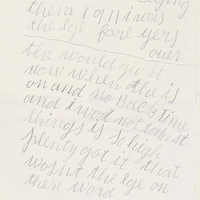 then a 1911 i was
the lge fore yers
over
the would giv it
now when the is
on and no Back time
and i wod not take it
things is So high
plenty got it that
wosnt the lge on
there word